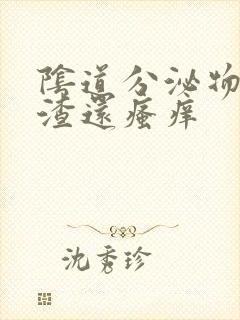 陰道分泌物
渣還瘙痒
沈秀珍